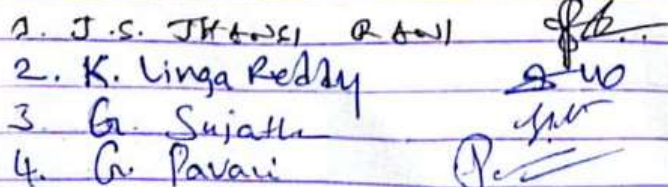 1. J.S. JHANSI RANI
2. K. Linga Reddy
3. G. Sujatha
4. G. Pavani